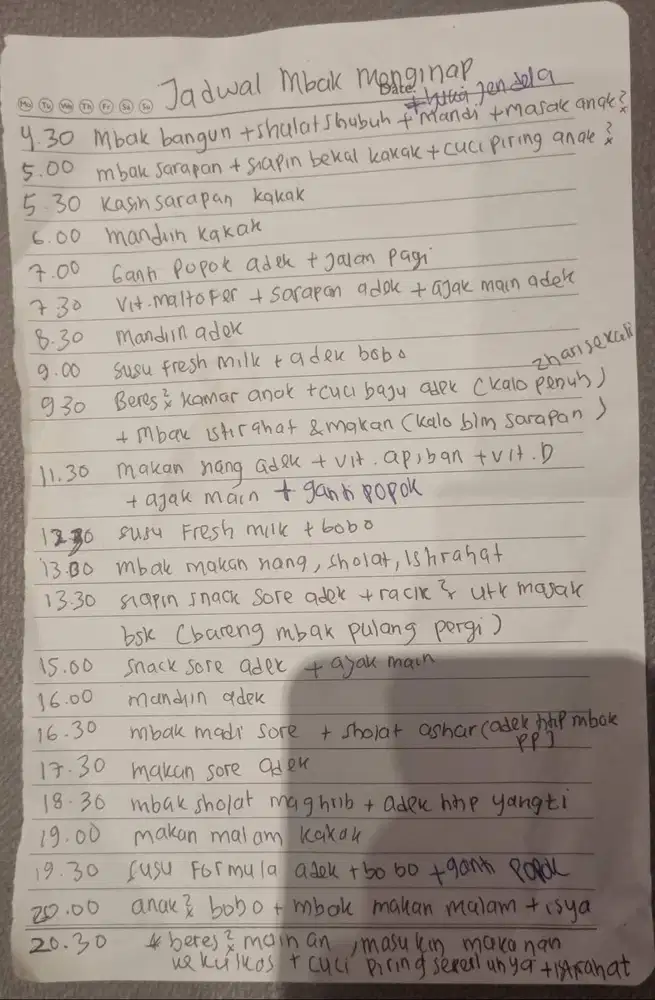 Jadwal Mbak Menginap
Mo Tu We Th Fr Sa Su
Date:
+ buka jendela
4.30 Mbak bangun + shalat shubuh + mandi + masak anak²
5.00 mbak sarapan + siapin bekal kakak + cuci piring anak²
5.30 Kasih sarapan kakak
6.00 mandiin kakak
7.00 Ganti popok adek + jalan pagi
7.30 Vit. maltofer + sarapan adek + ajak main adek
8.30 mandiin adek
9.00 susu fresh milk + adek bobo
2 hari sekali
9.30 Beres² kamar anak + cuci baju adek (kalo penuh)
+ Mbak istirahat & makan (kalo blm sarapan)
11.30 makan siang adek + vit. apiban + vit. D
+ ajak main + ganti popok
12.30 susu Fresh milk + bobo
13.00 mbak makan siang, sholat, istirahat
13.30 siapin snack sore adek + racik² utk masak
bsk (bareng mbak pulang pergi)
15.00 snack sore adek + ajak main
16.00 mandiin adek
16.30 mbak madi sore + sholat ashar (adek ttp mbak
PP)
17.30 makan sore adek
18.30 mbak sholat maghrib + adek ttp yangti
19.00 makan malam kakak
19.30 susu Formula adek + bobo + ganti popok
20.00 anak² bobo + mbak makan malam + isya
20.30 * beres² mainan, masukin makanan
ke kulkas + cuci piring seperlunya + istirahat